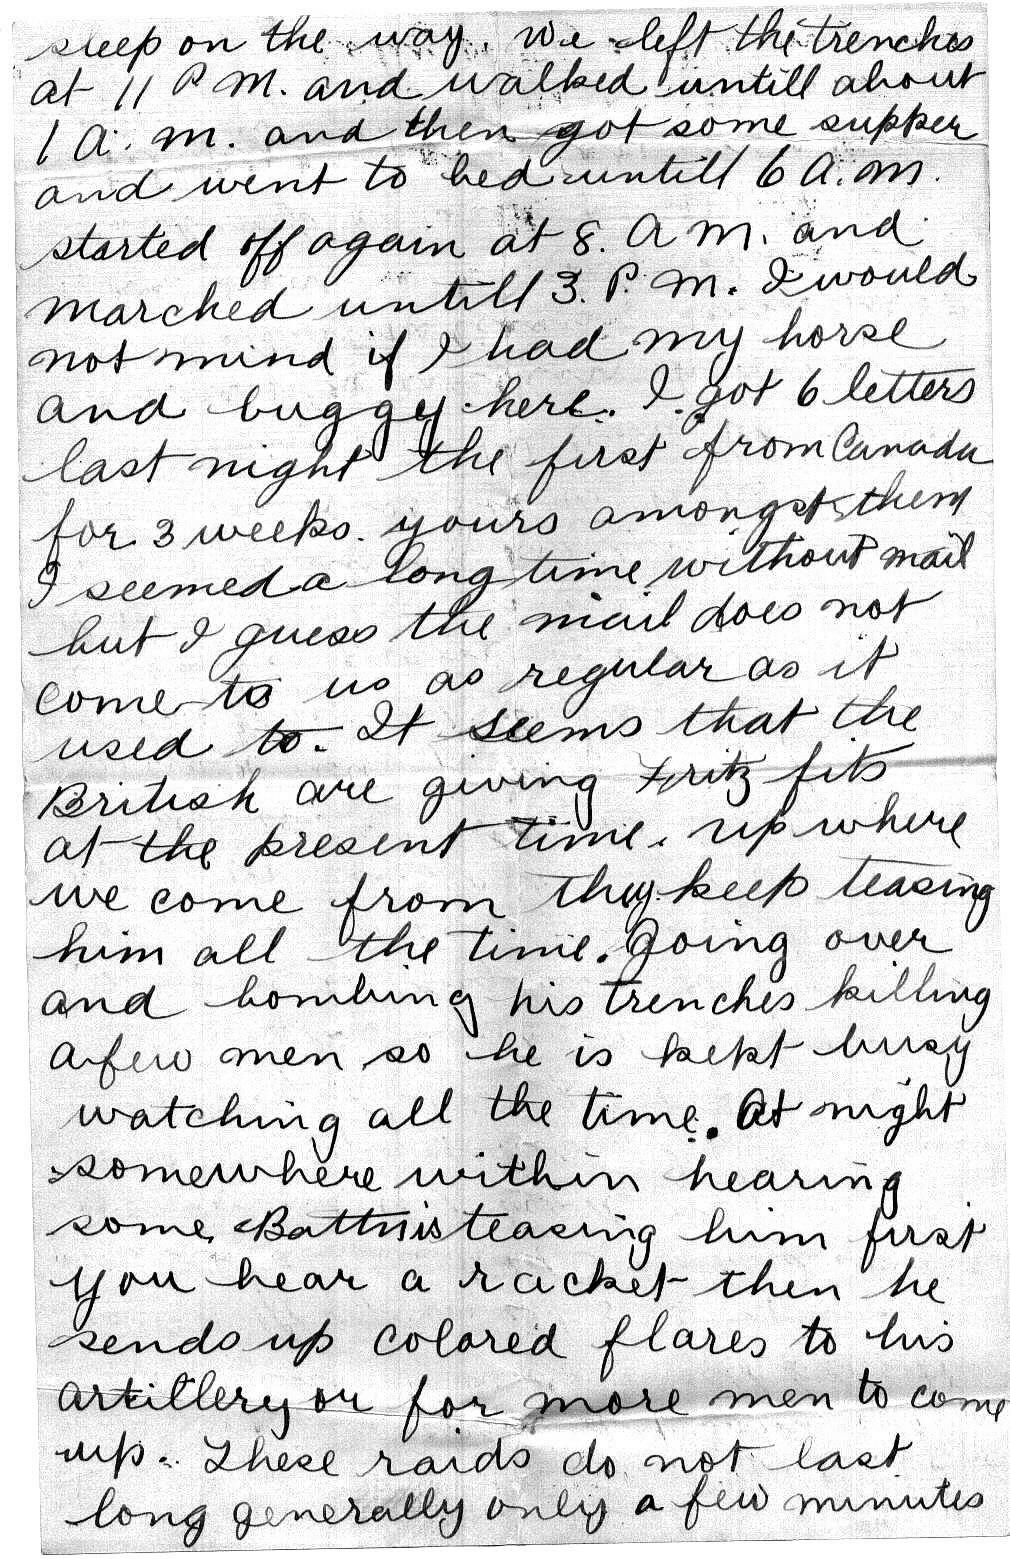 sleep on the way. We left the trenches
at 11 P M. and walked untill about
1 A. M. and then got some supper
and went to bed untill 6 A. M.
started off again at 8. A M. and
marched untill 3. P. M. I would
not mind if I had my horse
and buggy here. I got 6 letters
last night the first from Canada
for 3 weeks. yours amongst them
I seemed a long time without mail
but I guess the mail does not
come to us as regular as it
used to. It seems that the
British are giving Fritz fits
at the present time. up where
we come from they keep teasing
him all the time. Going over
and bombing his trenches killing
a few men so he is kept busy
watching all the time. At night
somewhere within hearing
some Battn is teasing him first
you hear a racket then he
sends up colored flares to his
artillery or for more men to come
up. These raids do not last
long generally only a few minutes